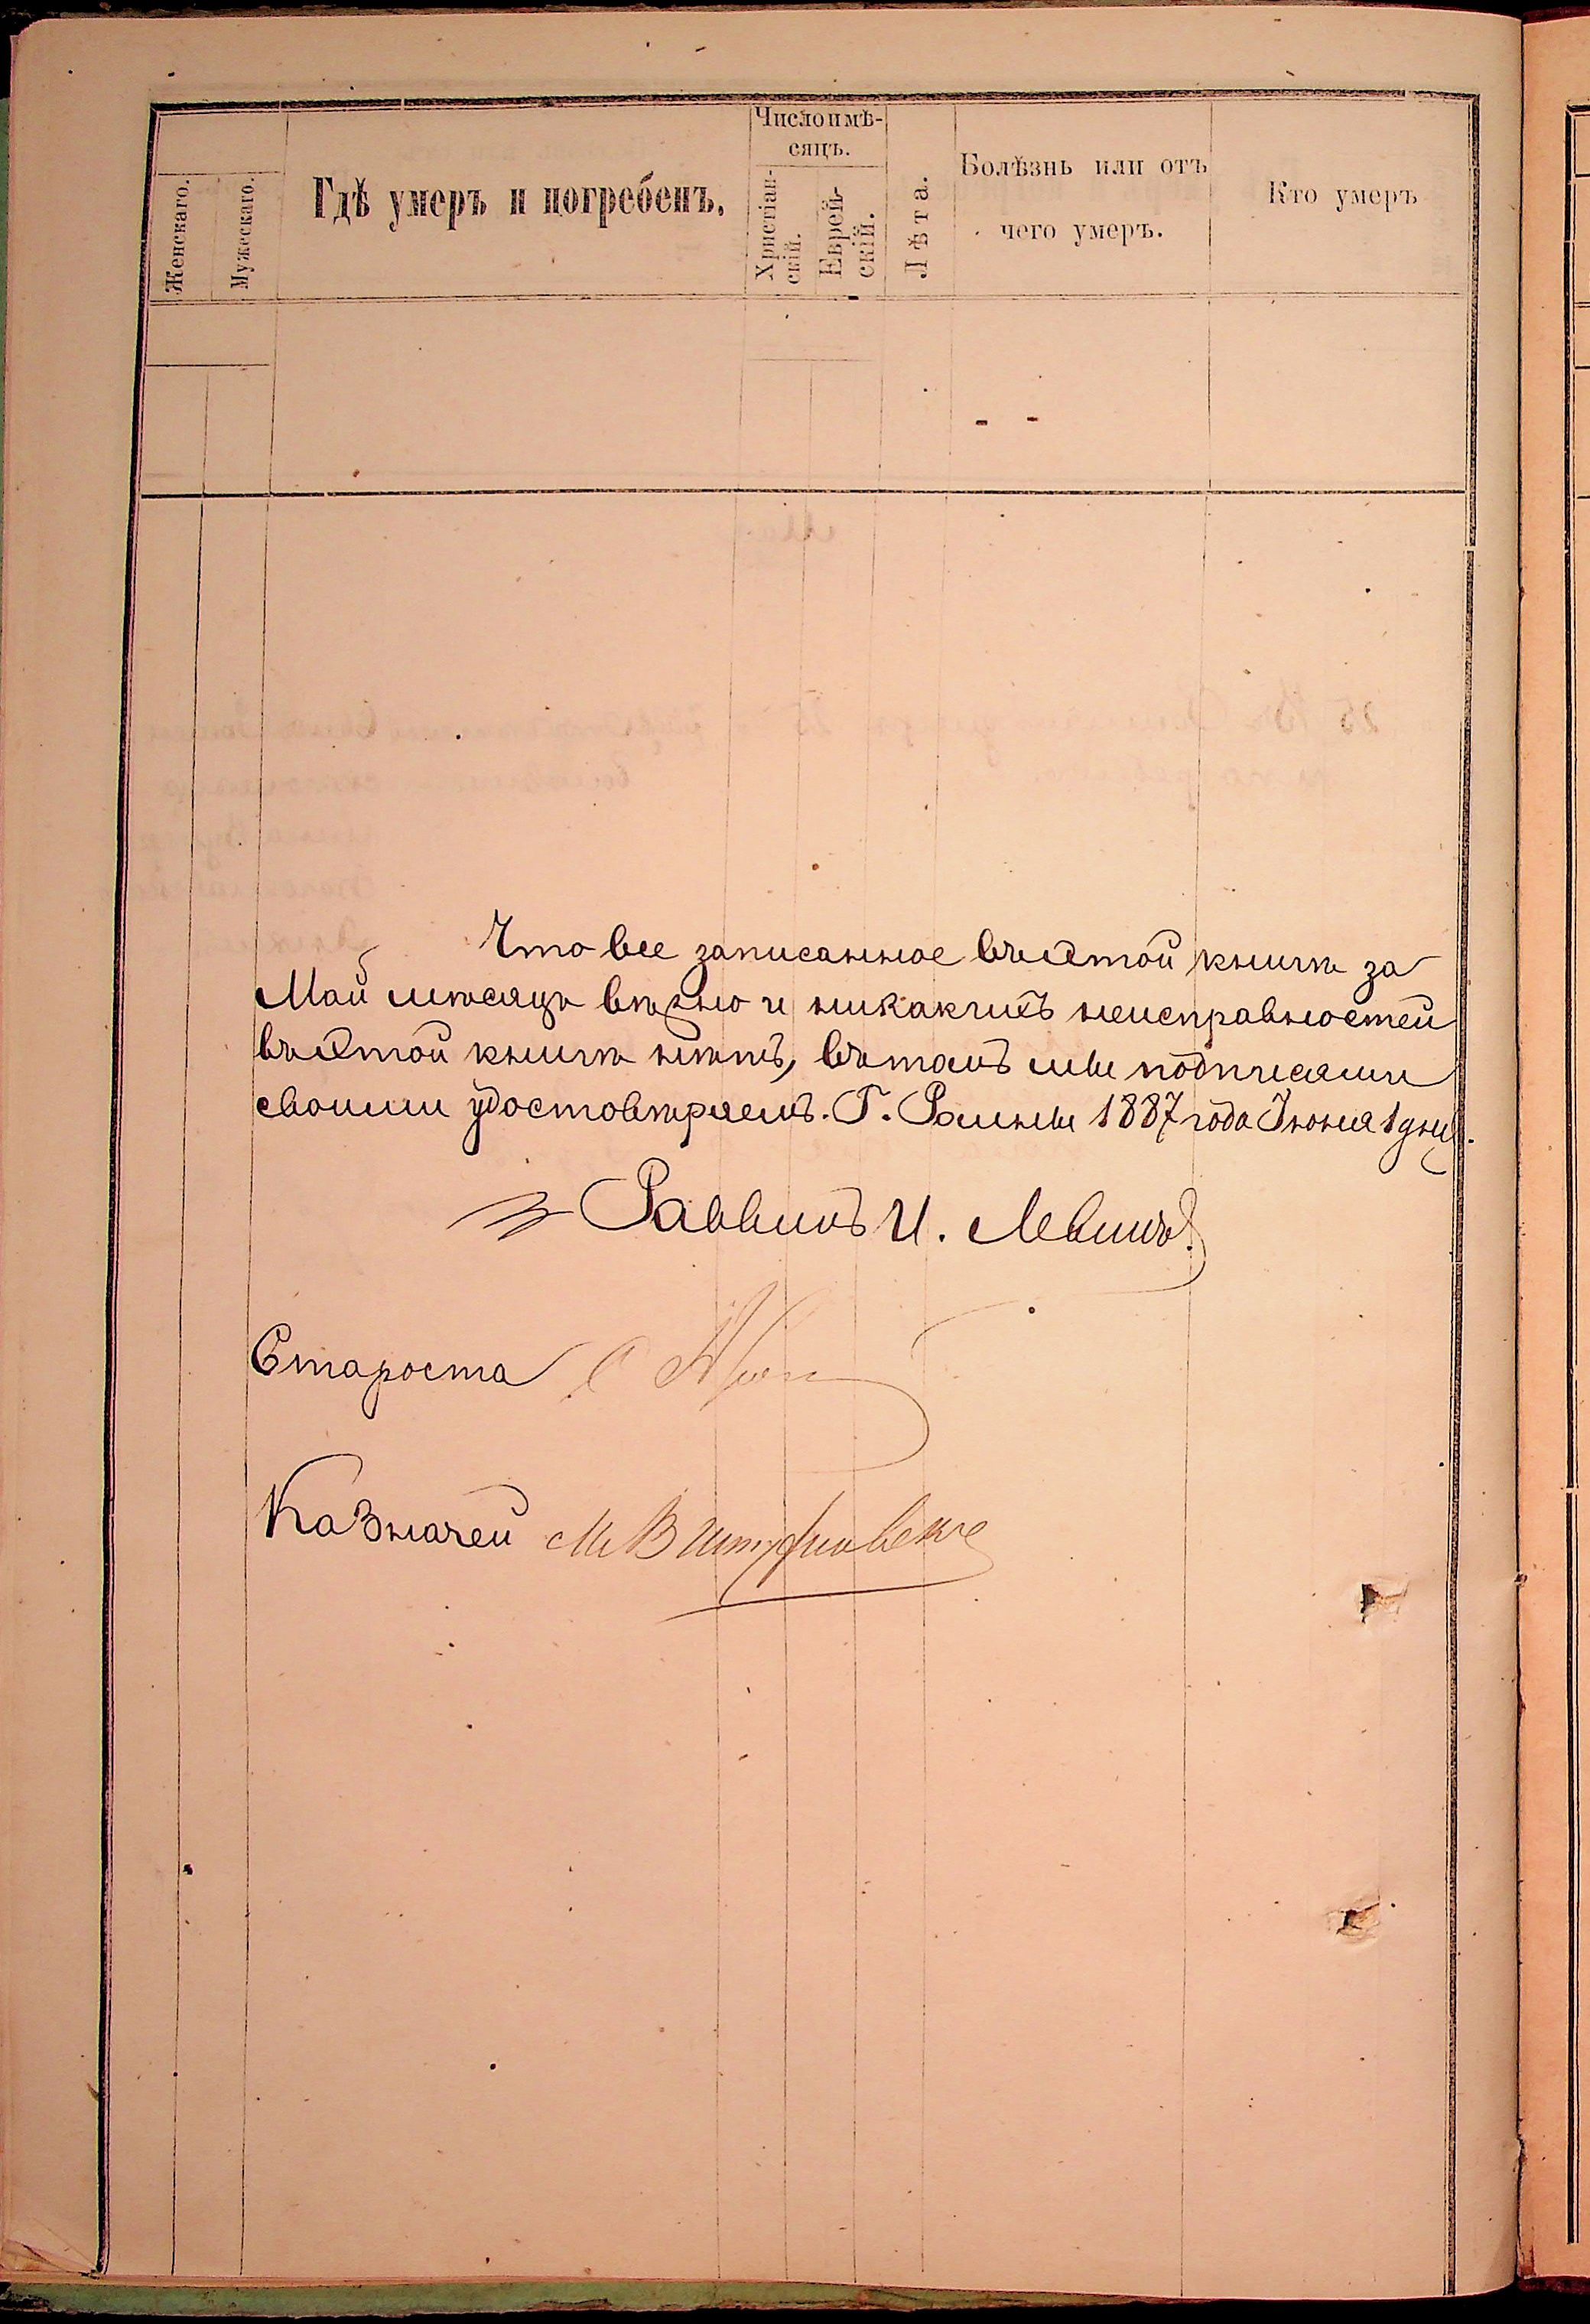 Женскаго.
Мужескаго.
Гдѣ умеръ и погребенъ.
Число и мѣ-
сяцъ.
Христіан-
скій.
Еврей-
скій.
Лѣта.
Болѣзнь или отъ
чего умеръ.
Кто умеръ
Что все записанное въ этой книгѣ за
Май мѣсяцъ вѣрно и никакихъ неисправностей
въ этой книгѣ нѣтъ, въ томъ мы подписями
своими удостовѣряемъ. Г. 1887 года Іюня 1 дня.
Раввинъ И. Левинъ
Староста
Казначей М В